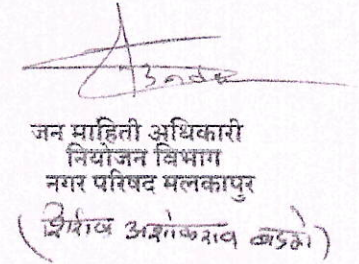 जन माहिती अधिकारी
नियोजन विभाग
नगर परिषद मलकापुर
अशोकराव